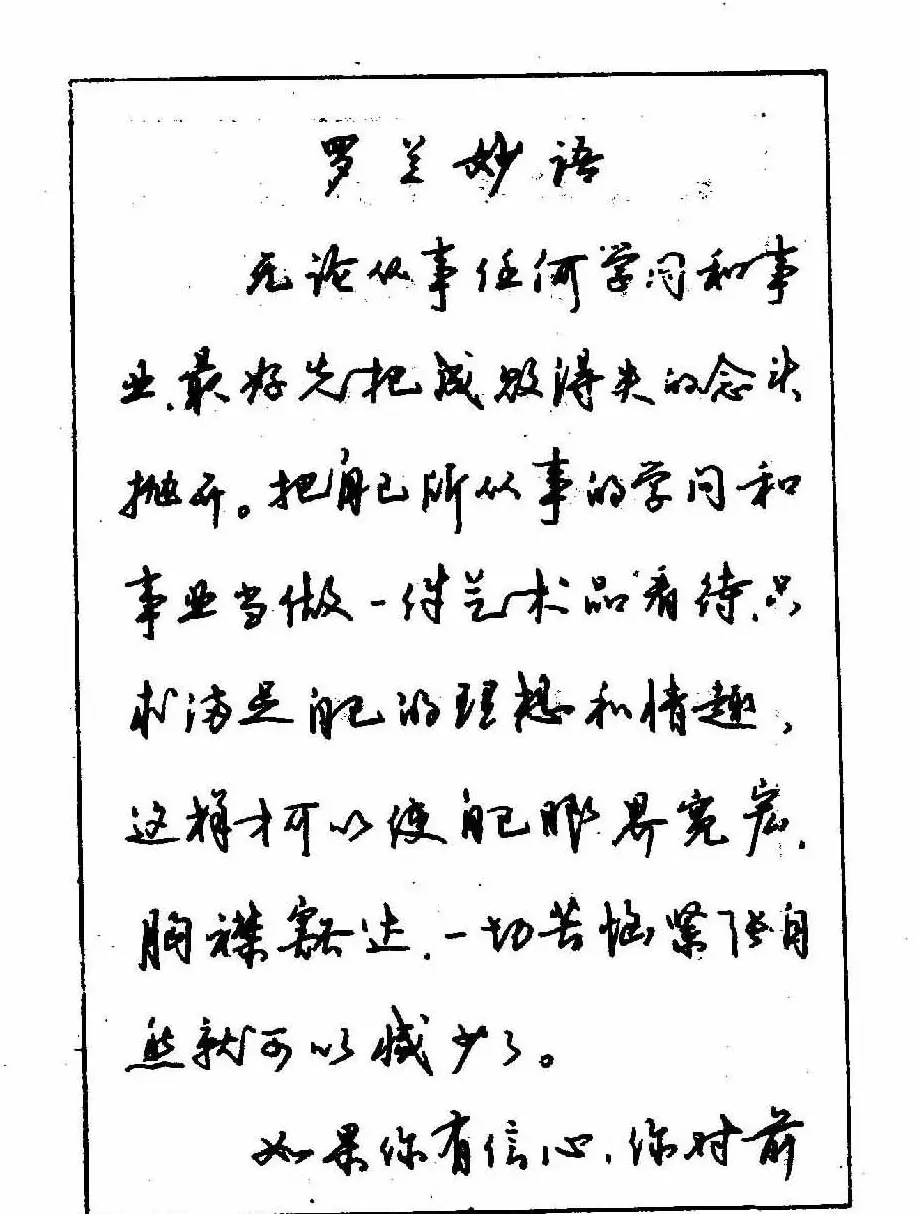 罗兰妙语
无论从事任何学问和事
业,最好先把成败得失的念头
抛开。把自己所从事的学问和
事业当做一件艺术品看待,只
求满足自己的理想和情趣,
这样才可以使自己眼界宽宏,
胸襟豁达,一切苦恼紧张自
然就可以减少了。
如果你有信心,你对前